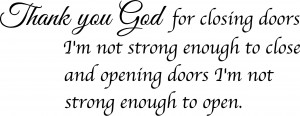 Thank you God for closing doors
I'm not strong enough to close
and opening doors I'm not
strong enough to open.